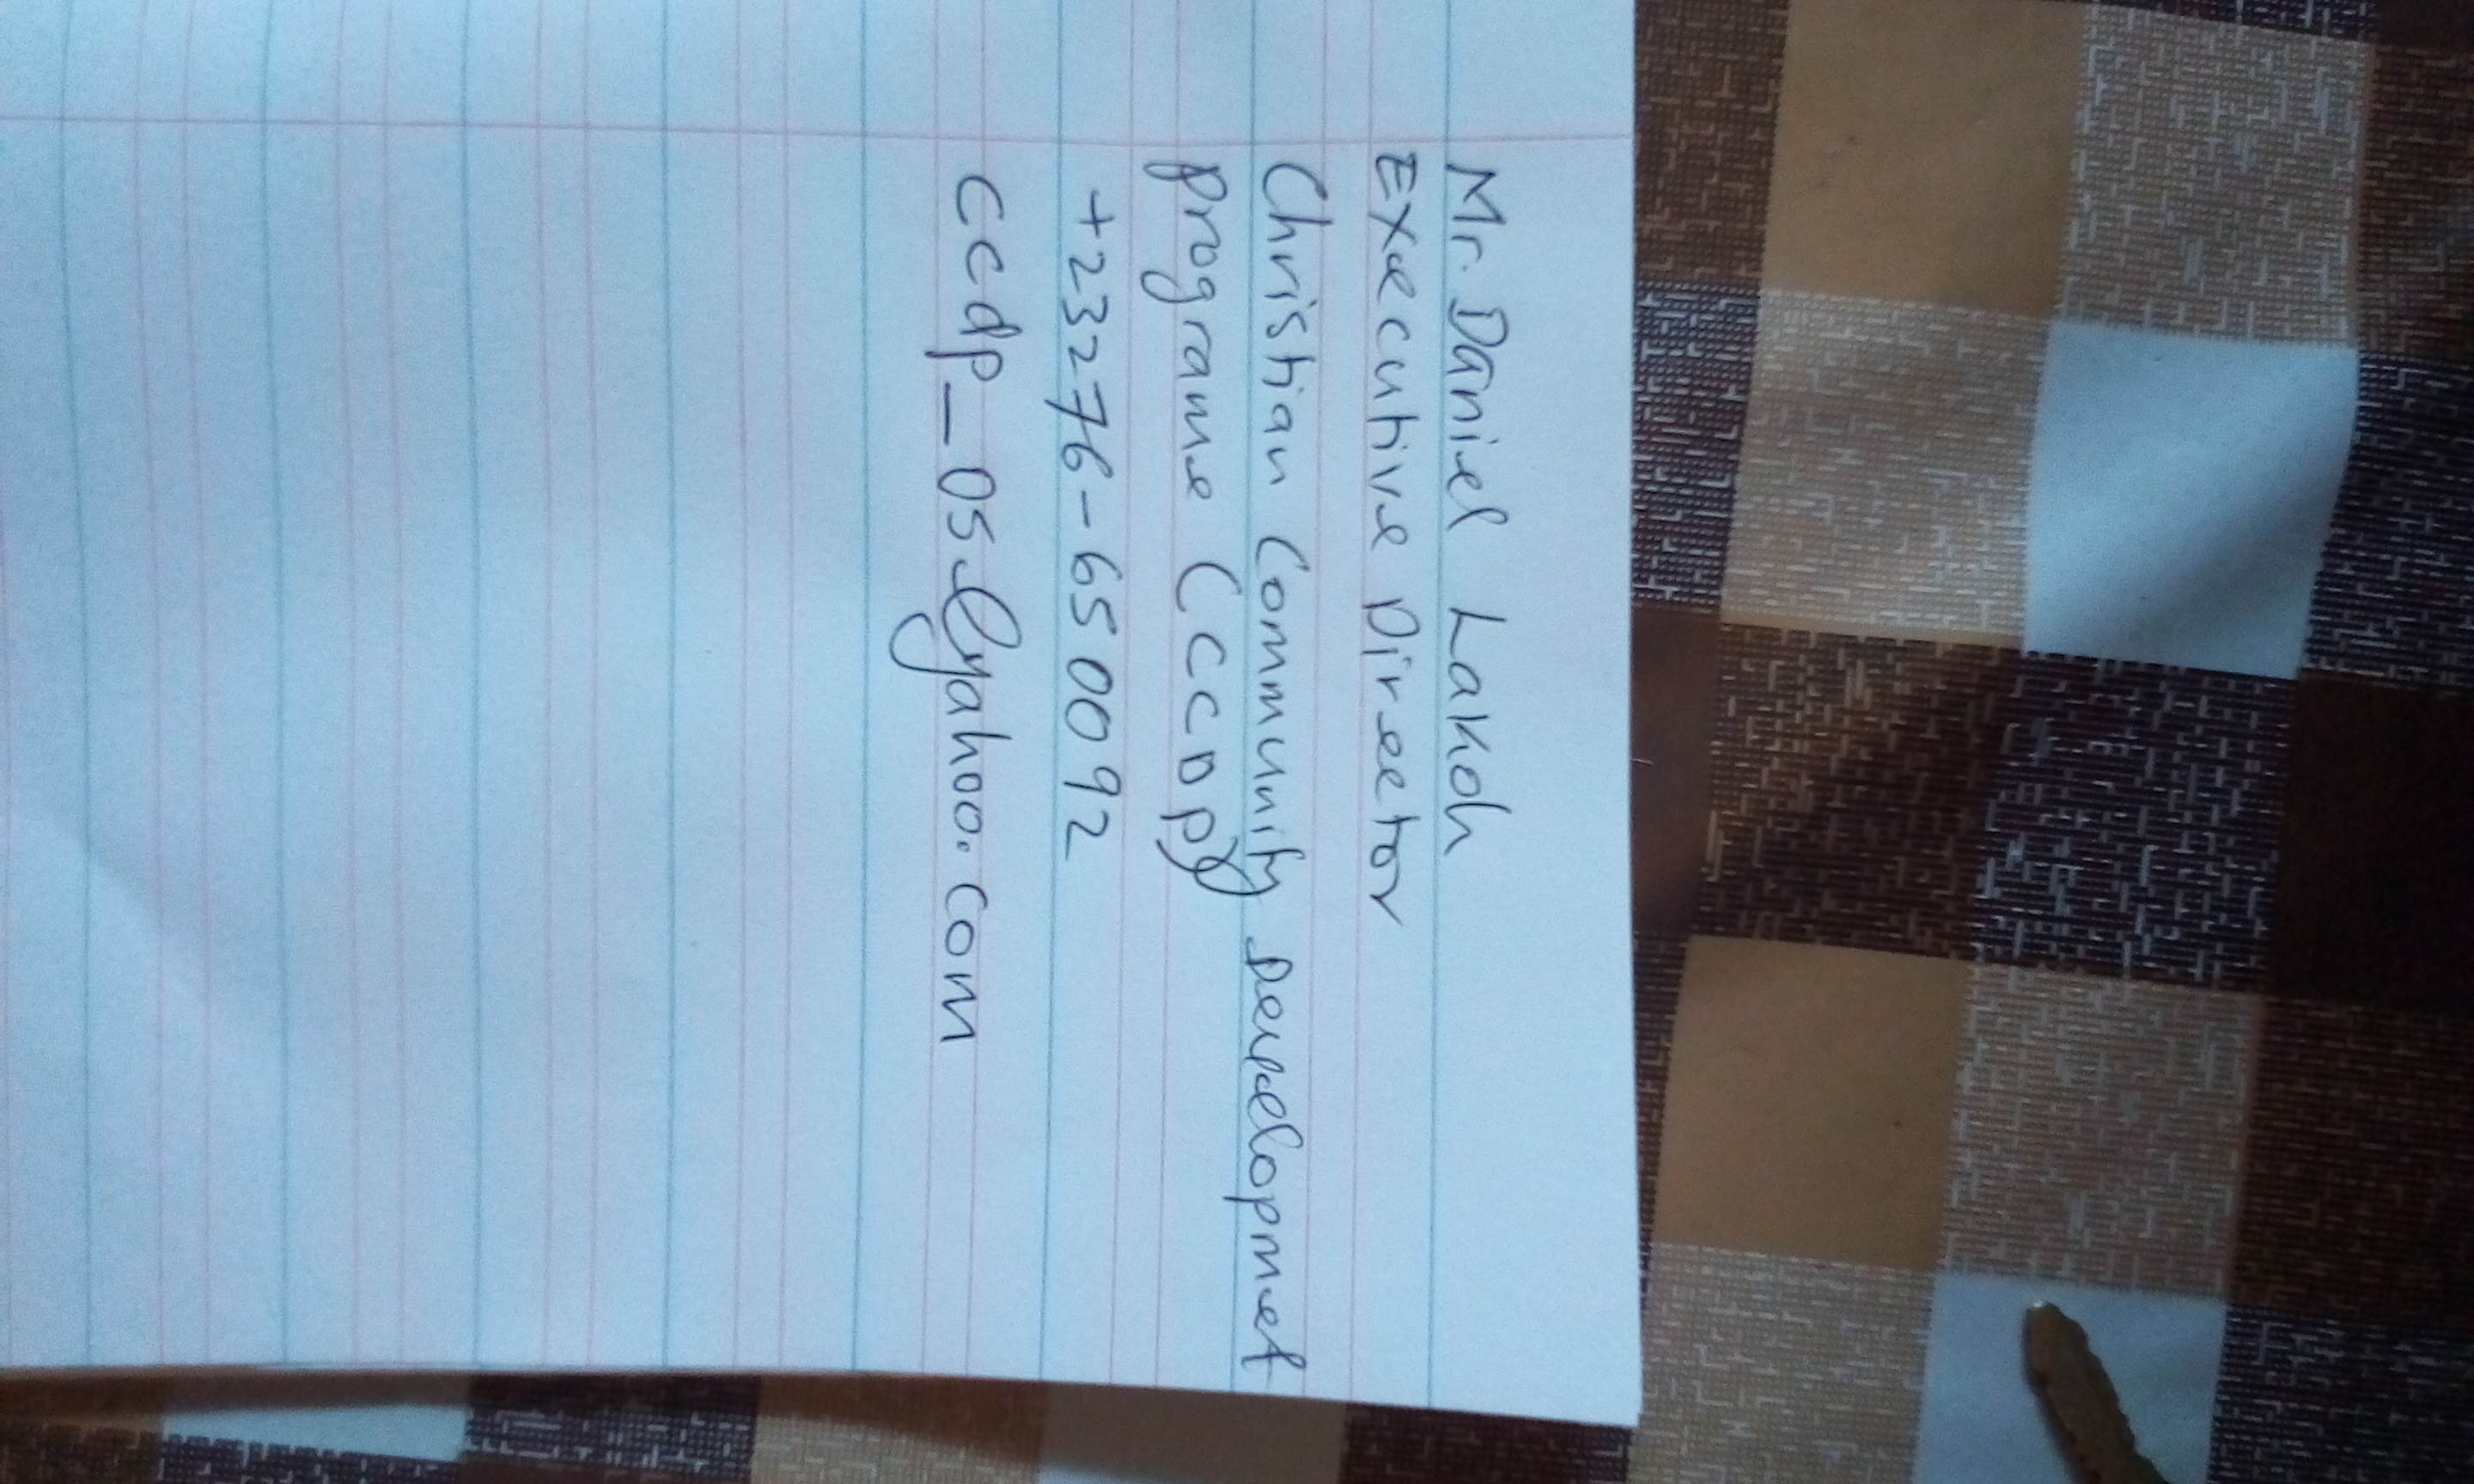 Mr. Daniel Lakoh
Executive Director
Christian Community Developmet
Programe (CCDP)
+23276-650092
ccdp_05@yahoo.com